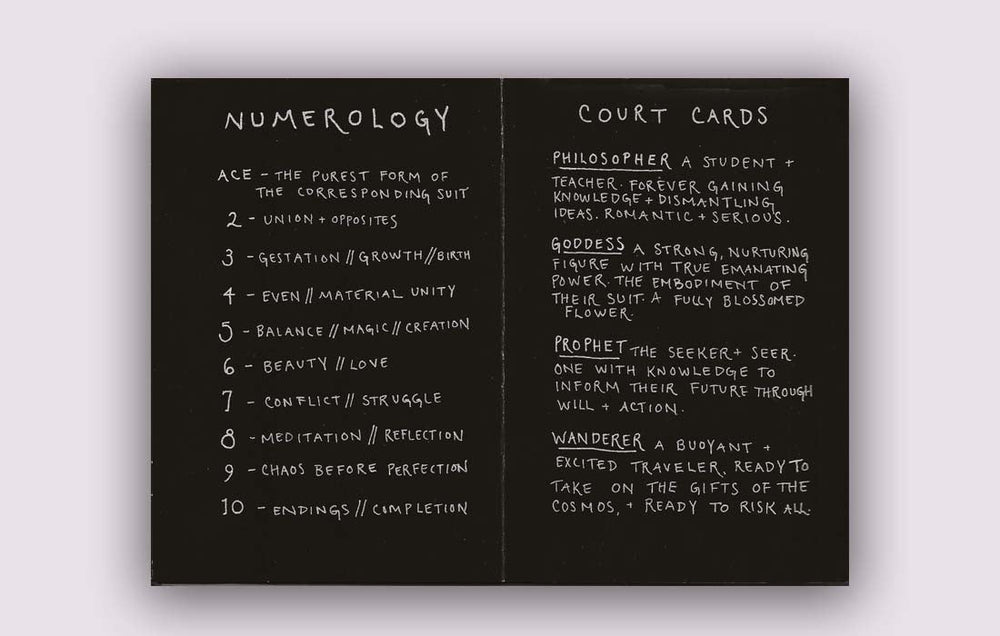 NUMEROLOGY
ACE - THE PUREST FORM OF
THE CORRESPONDING SUIT
2 - UNION + OPPOSITES
3 - GESTATION // GROWTH // BIRTH
4 - EVEN // MATERIAL UNITY
5 - BALANCE // MAGIC // CREATION
6 - BEAUTY // LOVE
7 - CONFLICT // STRUGGLE
8 - MEDITATION // REFLECTION
9 - CHAOS BEFORE PERFECTION
10 - ENDINGS // COMPLETION
COURT CARDS
PHILOSOPHER A STUDENT +
TEACHER. FOREVER GAINING
KNOWLEDGE + DISMANTLING
IDEAS. ROMANTIC + SERIOUS.
GODDESS A STRONG, NURTURING
FIGURE WITH TRUE EMANATING
POWER. THE EMBODIMENT OF
THEIR SUIT. A FULLY BLOSSOMED
FLOWER.
PROPHET THE SEEKER + SEER.
ONE WITH KNOWLEDGE TO
INFORM THEIR FUTURE THROUGH
WILL + ACTION.
WANDERER A BUOYANT +
EXCITED TRAVELER, READY TO
TAKE ON THE GIFTS OF THE
COSMOS, + READY TO RISK ALL.